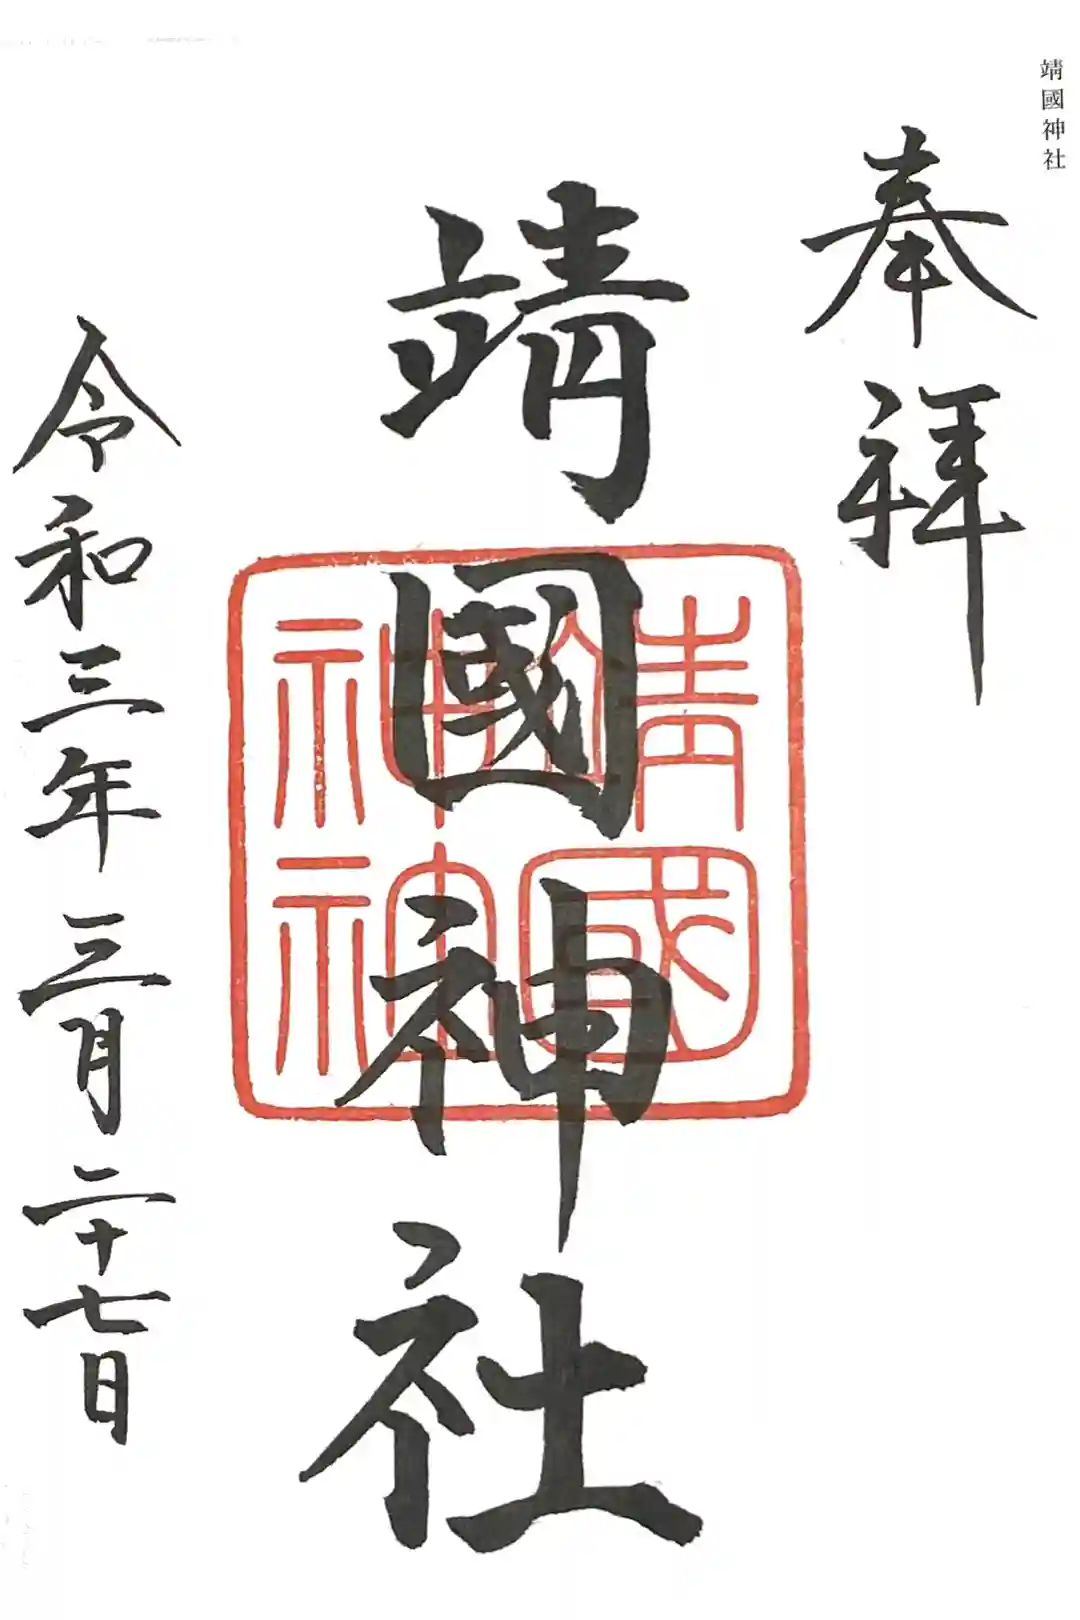 靖國神社
奉拝
靖國神社
靖國神社
令和三年三月二十七日